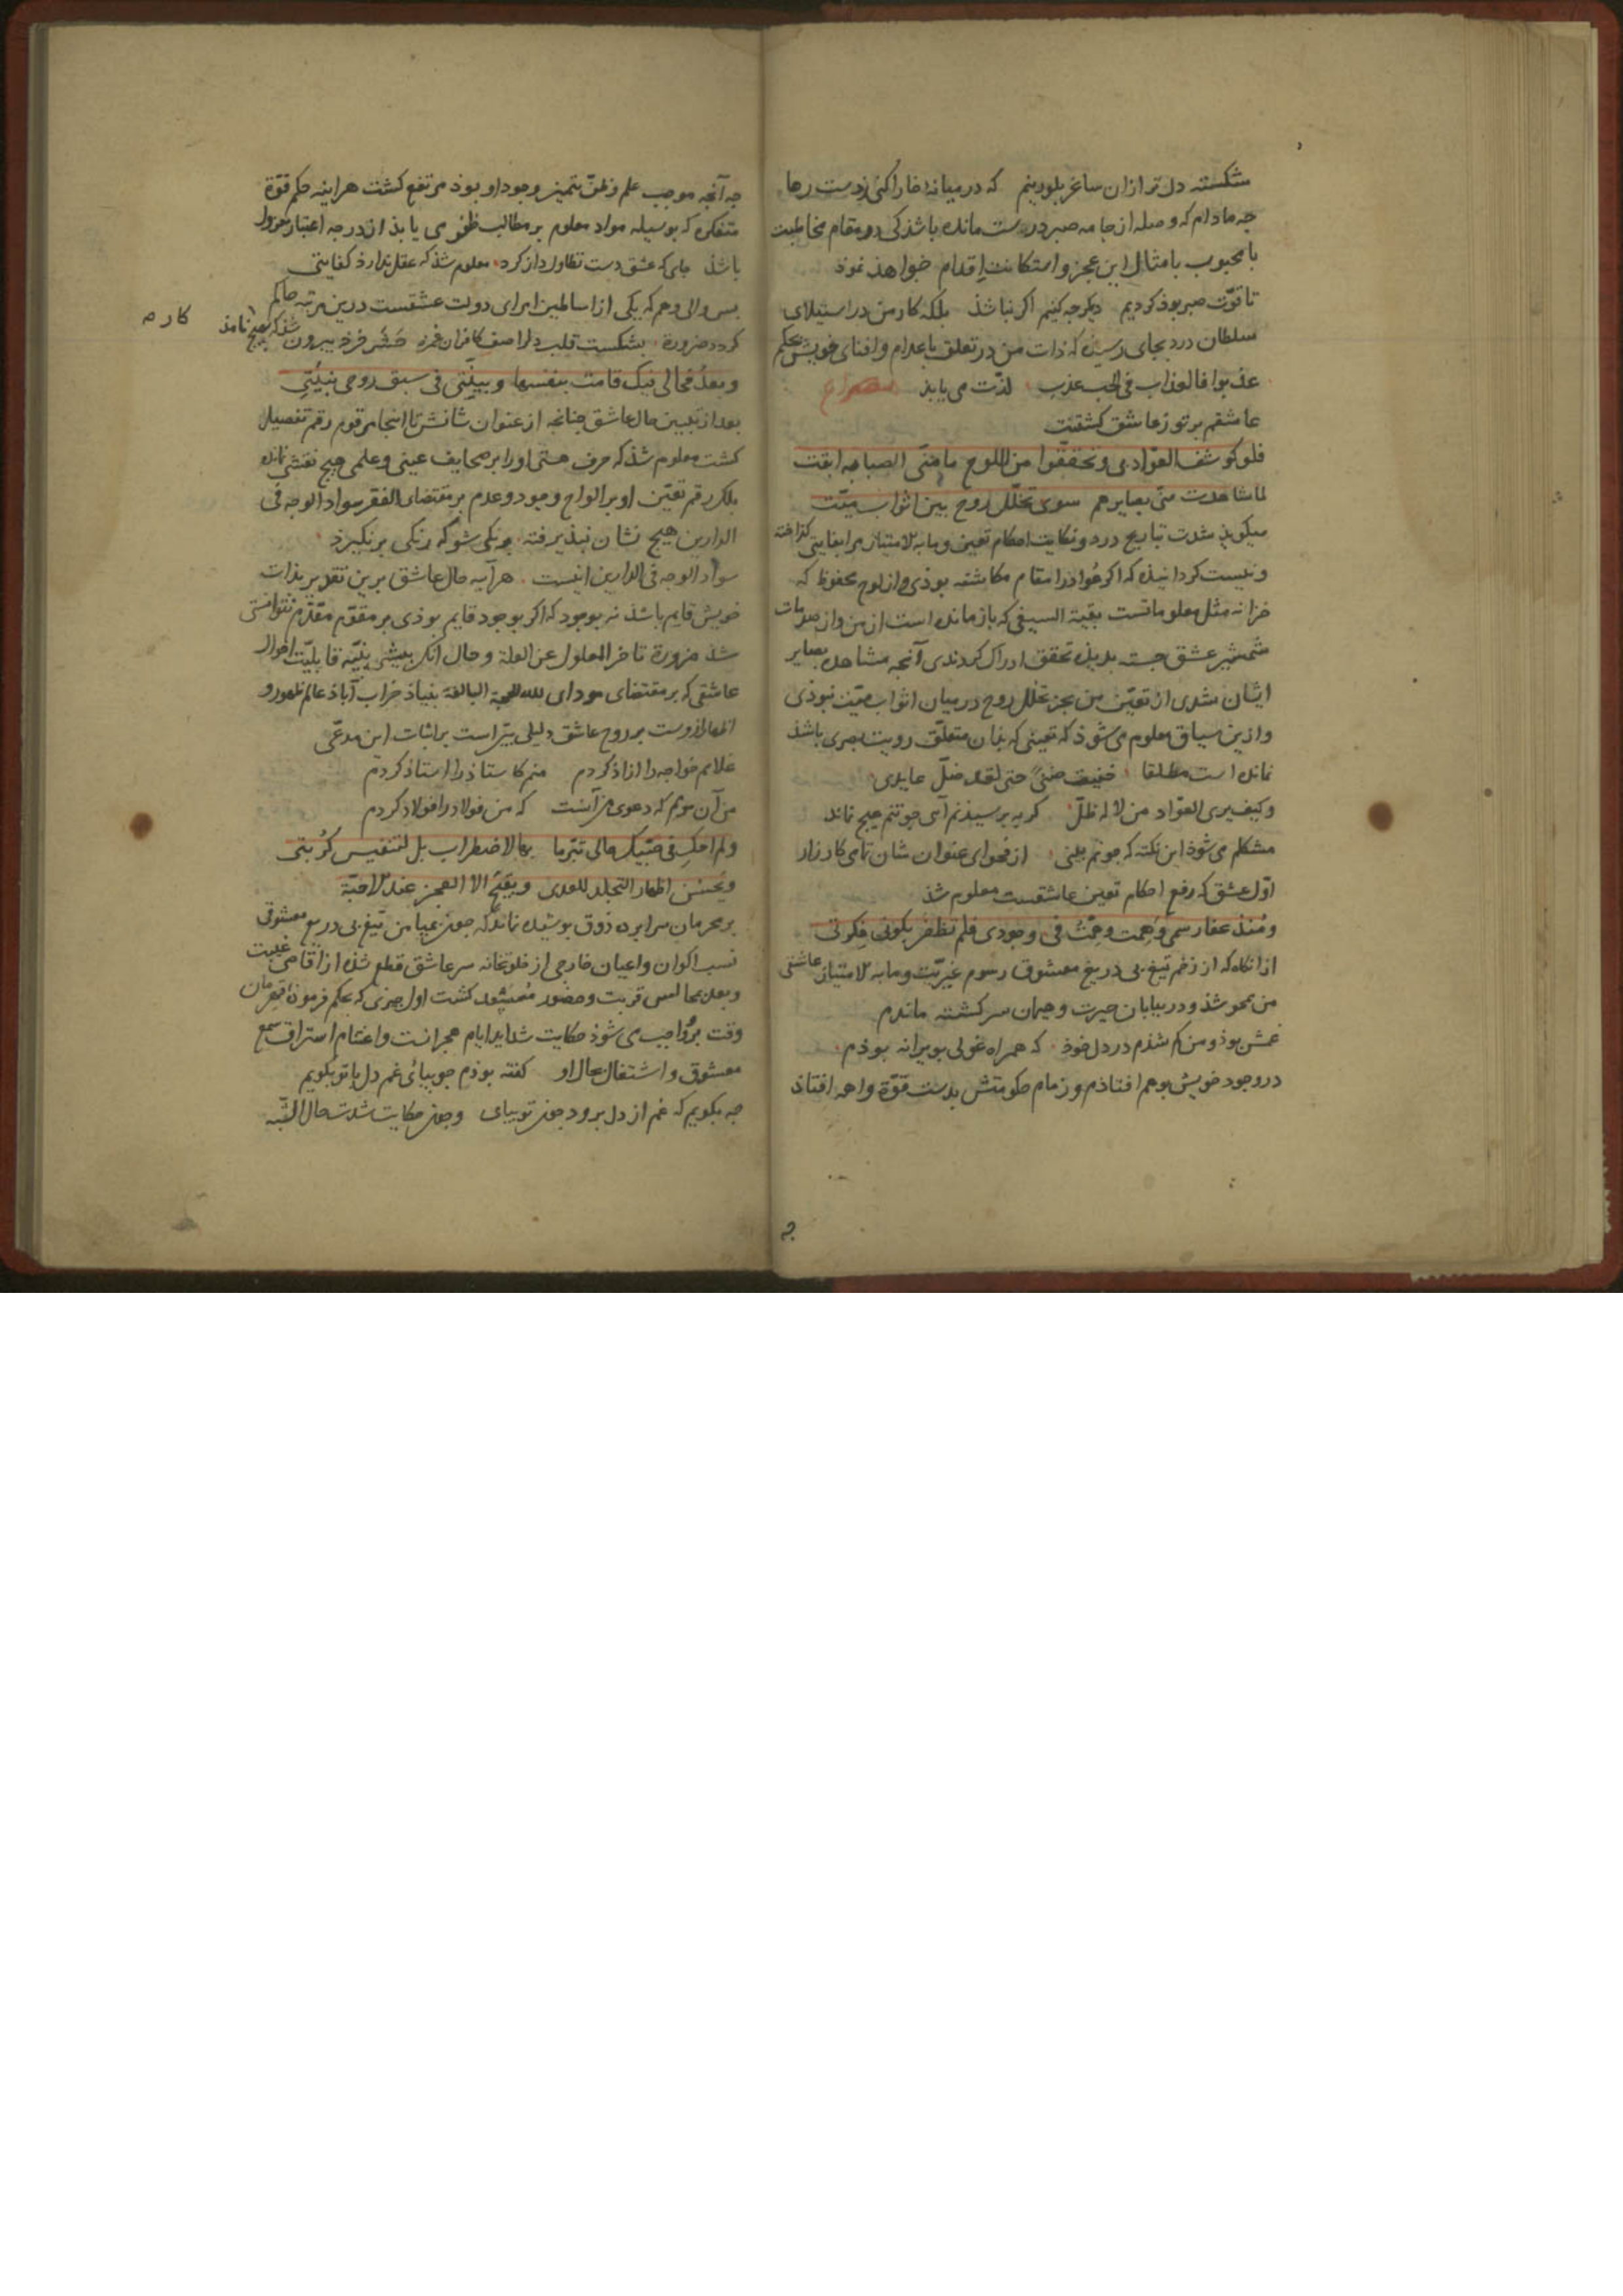 شکسته دل تر ازان ساغر بلورینم که در میانه خارا کنی ز دست رها
چه مادام که وصله از جامه صبر درست مانده باشد کی در مقام مخاطبت
با محبوب با مثال این عجز و استکانت اقدام خواهذ نموذ
تا قوّت صبر بوذ کردیم دیکر چه کنیم اکر نباشذ بلکه کار من در استیلای
سلطان درد بجای رسیذه که ذات من در تعلق باعدام و افنای خویش بحکم
عذبوا فالعذاب فی الحب عذب لذّت می یابذ
عاشقم بر تو ز عاشق کشتنت
فلو کوشف العوّاد بی و تحققوا من اللوح ما منّی الصبابه ابقت
لما شاهدت منّی بصایرهم سوی تخلّل روح بین اثواب میّت
میکوید شدت تباریح درد و نکایت احکام تعین و مابه الامتیاز مرا بغایتی کذاخته
و نیست کردانیذه که اکر عوّاد را مقام مکاشفه بوذی و از لوح محفوظ که
خزانه مثل معلوماتست بقیة السیفی که باز مانده است از من و از صدمات
شمشیر عشق جسته بدیذه تحقق ادراک کردندی آنچه مشاهده بصایر
ایشان شدی از تعیّن من بجز تخلل روح در میان اثواب میّت نبوذی
و ازین سیاق معلوم می شوذ که تعینی که بدان متعلّق رویت بصری باشذ
نمانده است مطلقا خفیت ضنیً حتی لقد ضلّ عایدی
و کیف یری العوّاد من لا له ظلّ کر به پرسیذنم آیی چو تنم هیچ نماند
مشکلم می شوذ این نکته که چونم بینی از فحوای عنوان شان تامی کارزار
اوّل عشق که رفع احکام تعین عاشقست معلوم شذ
و منذ عفا رسمی و همت وهمت فی وجودی فلم تظفر بکونی فکرتی
ازانکاه که از زخم تیغ بی دریغ معشوق رسوم غیریّت و مابه الامتیاز عاشقی
من محو شذ و در بیابان حیرت و هیمان سرکشته ماندم
غمش بوذ و من کم شذم در دل خوذ که همراه غولی بویرانه بوذم
در وجود خویش بوهم افتاذم و زمام حکومتش بدست قوّة واهمه افتاذ
چه آنچه موجب علم و ظنّ بتمیز وجود او بوذ مرتفع کشت هراینه حکم قوّة
متفکره که بوسیله مواد معلوم بر مطالب ظفر می یابذ از درجه اعتبار معزول
باشذ جایی که عشق دست تطاول دراز کرد معلوم شذ که عقل ندارذ کفایتی
بس والی وهم که یکی از اسالمین امرای دولت عشقست درین مرتبه حاکم
کردد ضرورة بشکست قلب دلرا صف کافران غمزه حشر خرد بیرون شذ که هیچ نامذ
کاره
و بعدُ فحالی فیک قامت بنفسها و بیّنتی فی سبق روحی بنیّتی
بعد از تبیین حال عاشق چنانچه از عنوان شانش تا انجا مرقوم رقم تفصیل
کشت معلوم شذ که حرف هستی او را بر صحایف عینی و علمی هیچ نقشی نمانده
بلکه رقم تعیّن او بر الواح وجود و عدم بر مقتضای الفقر سواد الوجه فی
الدارین هیچ نشان نپذیرفته برنکی شو که رنکی برنکیرذ
سواد الوجه فی الدارین اینست هرآیه حال عاشق برین تقدیر بذات
خویش قایم باشذ نه بوجود که اکر بوجود قایم بوذی بر مقوّم مقدّم نتوانستی
شذ ضرورة تاخر المعلول عن العلة و حال انکه پیشی بنیّه قابلیّت احوال
عاشقی که بر مقتضای مودای لله الحجة البالغة بنیاذ خراب آباذ عالم ظهور و
اظهار ازوست بر روح عاشق دلیلی بیّن است بر اثبات این مدعّی
غلامم خواجه را ازاذ کردم منم کاستاذ را استاذ کردم
من آن مومم که دعوی من آنست که من فولاد را فولاد کردم
ولم احک فی حبّیک حالی تبرّما بها لاضطراب بل لتنفیس کُربتی
و یحسن اظهار التجلد للعدی و یقبح الا العجز عند الاحبّة
بر محرمان سرابرده ذوق پوشیده نماند که چون بمیامن تیغ بی دریغ معشوقی
نسب اکوان و اعیان خارجی از خلوتخانه سر عاشق قطع شذه از اقاصی غیبت
و بعد بمجالس قربت و حضور مُستسعد کشت اول چیزی که بحکم فرموذه قهرمان
وقت برو واجب می شوذ حکایت شداید ایام هجرانست و اغتنام استراق سمع
معشوق و اشتغال بحال او کفته بوذم چو بیائی غم دل با تو بکویم
چه بکویم که غم از دل برود چون تو بیای و چون حکایت شدت حال الشّبه